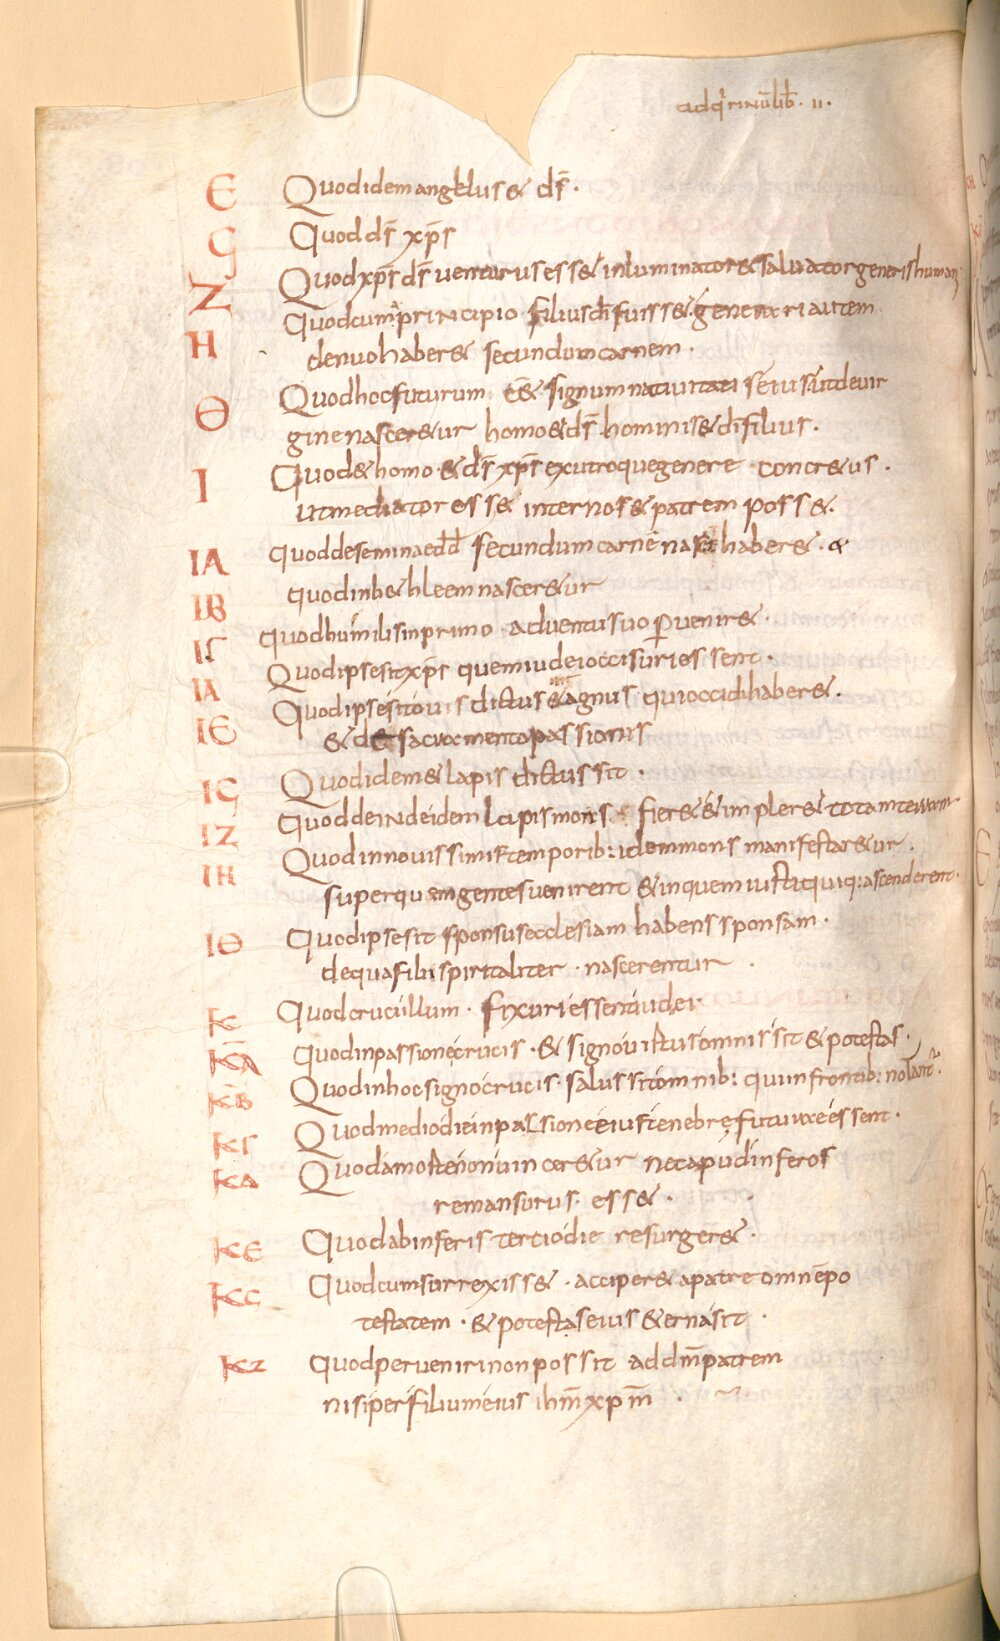 adq̄rinūlib̄. II.
Є Quod idem angelus & d̄s.
Ϛ Quod d̄s xp̄s
Z Quod xp̄s d̄s uenturus ess& inluminator & saluator generis humani
H Quod cum a principio filius d̄i fuiss& generari autem
denuo haber& secundum carnem.
Θ Quod hoc futurum ess& signum natiuitatis eius ut de uir
gine nascer&ur homo & d̄s hominis & di filius.
I Quod & homo & d̄s xp̄s ex utroque genere concr&us.
ut mediator ess& inter nos & patrem poss&.
IA Quod de semina ed d̄d secundum carnē nasci haber&. &
IB quod in b&hleem nascer&ur
IΓ quod humilis in primo aduentu suo p̲uenir&.
IΔ Quod ipse sit xp̄s quem iudei occisuri essent.
IЄ Quod ipse sit ouis dictus & agnus qui occidi haber&.
& de sacramento passionis
IϚ Quod idem & lapis dictus sit.
IZ Quod deinde idem lapis mons fier& & impler& totam terram
IH Quod in nouissimis temporib: idem mons manifestar&ur.
super quem gentes uenirent & in quem iusti quiq: ascenderent.
IΘ Quod ipse sit sponsus ecclesiam habens sponsam.
de qua filii spiritaliter. nascerentur.
K Quod cruci illum. fixuri essent iudei
KA Quod in passione crucis. & signo uirtus omnis sit & potestas.
KB Quod in hoc signo crucis. salus sit omnib: qui in frontib: notant̄.
KΓ Quod medio die in passione eius tenebrę futurae essent.
KΔ Quod a morte non uincer&ur nec apud inferos
remansurus. ess&.
KЄ Quod ab inferis tertio die resurger&.
KϚ Quod cum surrexiss&. acciper& a patre omnē po
testatem. & potestas eius &erna sit.
KZ Quod perueniri non possit ad dm̄ patrem
nisi per filium eius ihm̄ xpm̄.